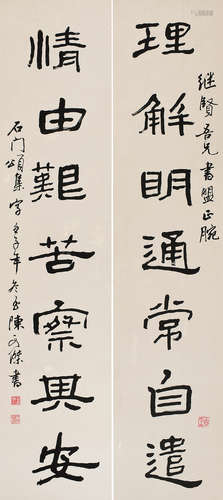 继賢吾兄書盟正腕
理解明通常自遣
情由艱苦察其安
石门頌集字壬子年冬陳傑書